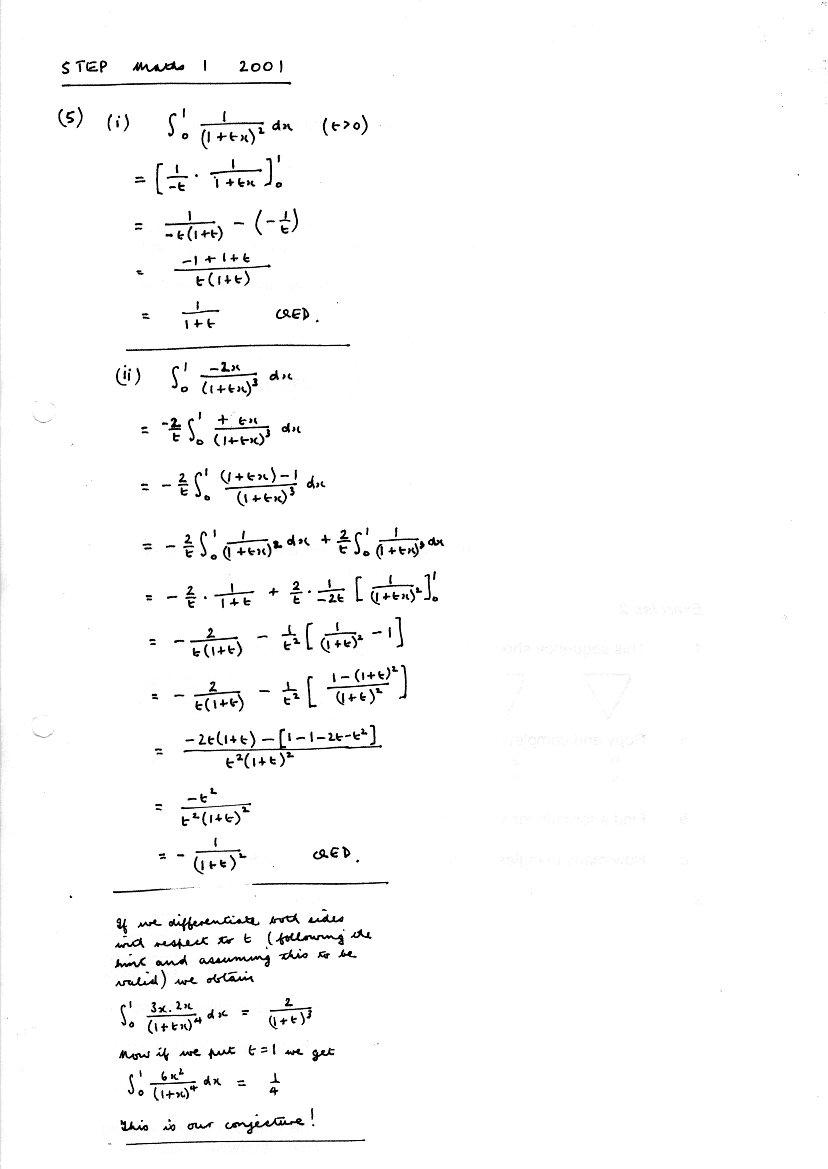 STEP Maths 1 2001
(5) (i) ∫₀¹ 1/(1+tx)² dx (t>0)
= [1/-t · 1/(1+tx)]₀¹
= 1/(-t(1+t)) - (-1/t)
= (-1+1+t)/(t(1+t))
= 1/(1+t) QED.
(ii) ∫₀¹ -2x/(1+tx)³ dx
= -2/t ∫₀¹ + tx/(1+tx)³ dx
= -2/t ∫₀¹ ((1+tx)-1)/(1+tx)³ dx
= -2/t ∫₀¹ 1/(1+tx)² dx + 2/t ∫₀¹ 1/(1+tx)³ dx
= -2/t · 1/(1+t) + 2/t · 1/-2t [1/(1+tx)²]₀¹
= -2/(t(1+t)) - 1/t² [1/(1+t)² - 1]
= -2/(t(1+t)) - 1/t² [(1-(1+t)²)/(1+t)²]
= (-2t(1+t) - [1-1-2t-t²])/(t²(1+t)²)
= -t²/(t²(1+t)²)
= -1/(1+t)² QED.
If we differentiate both sides
with respect to t (following the
hint and assuming this to be
valid) we obtain
∫₀¹ 3x.2x/(1+tx)⁴ dx = 2/(1+t)³
Now if we put t=1 we get
∫₀¹ 6x²/(1+x)⁴ dx = 1/4
This is our conjecture!